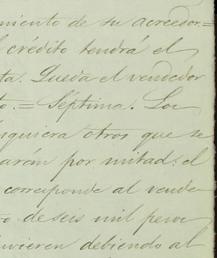 miento de su acreedor.=
l crédito tendrá el
ta. Queda el vendedor
to.= Séptima. Los
squiera otros que se
arán por mitad: el
corresponde al vende
vo de seis mil pesos
uvieren debiendo al